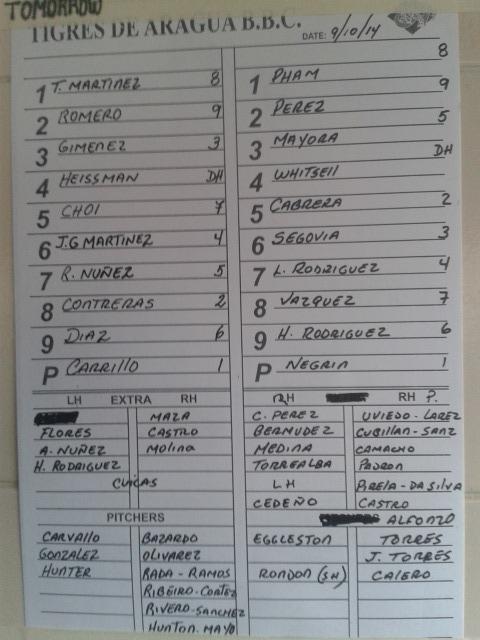 TOMORROW
TIGRES DE ARAGUA B.B.C.
DATE: 9/10/14
1 T. MARTINEZ 8
2 ROMERO 9
3 GIMENEZ 3
4 HEISSMAN DH
5 CHOI 7
6 J.G MARTINEZ 4
7 R. NUÑEZ 5
8 CONTRERAS 2
9 DIAZ 6
P CARRILLO 1
1 PHAM 8
2 PEREZ 9
3 MAYORA 5
4 WHITSEll DH
5 CABRERA 2
6 SEGOVIA 3
7 L. RODRIGUEZ 4
8 VAZQUEZ 7
9 H. RODRIGUEZ 6
P NEGRIN 1
LH EXTRA RH
MAZA
FLORES CASTRO
A. NUÑEZ Molina
H. RODRIGUEZ
CUICAS
PITCHERS
CARVAllO BAZARDO
GONZALEZ OLIVAREZ
HUNTER RADA - RAMOS
RIBEIRO-CORTEZ
RIVERO-SANCHEZ
HUNTON. MAYO
RH RH P.
C. PEREZ UVIEDO-LAREZ
BERMUDEZ CUBILLAN-SANZ
MEDINA CAMACHO
TORREALBA PADRON
LH BRELA-DASILVA
CEDEÑO CASTRO
ALFONZO
EGGLESTON TORRES
J. TORRES
RONDON (SH) CALERO